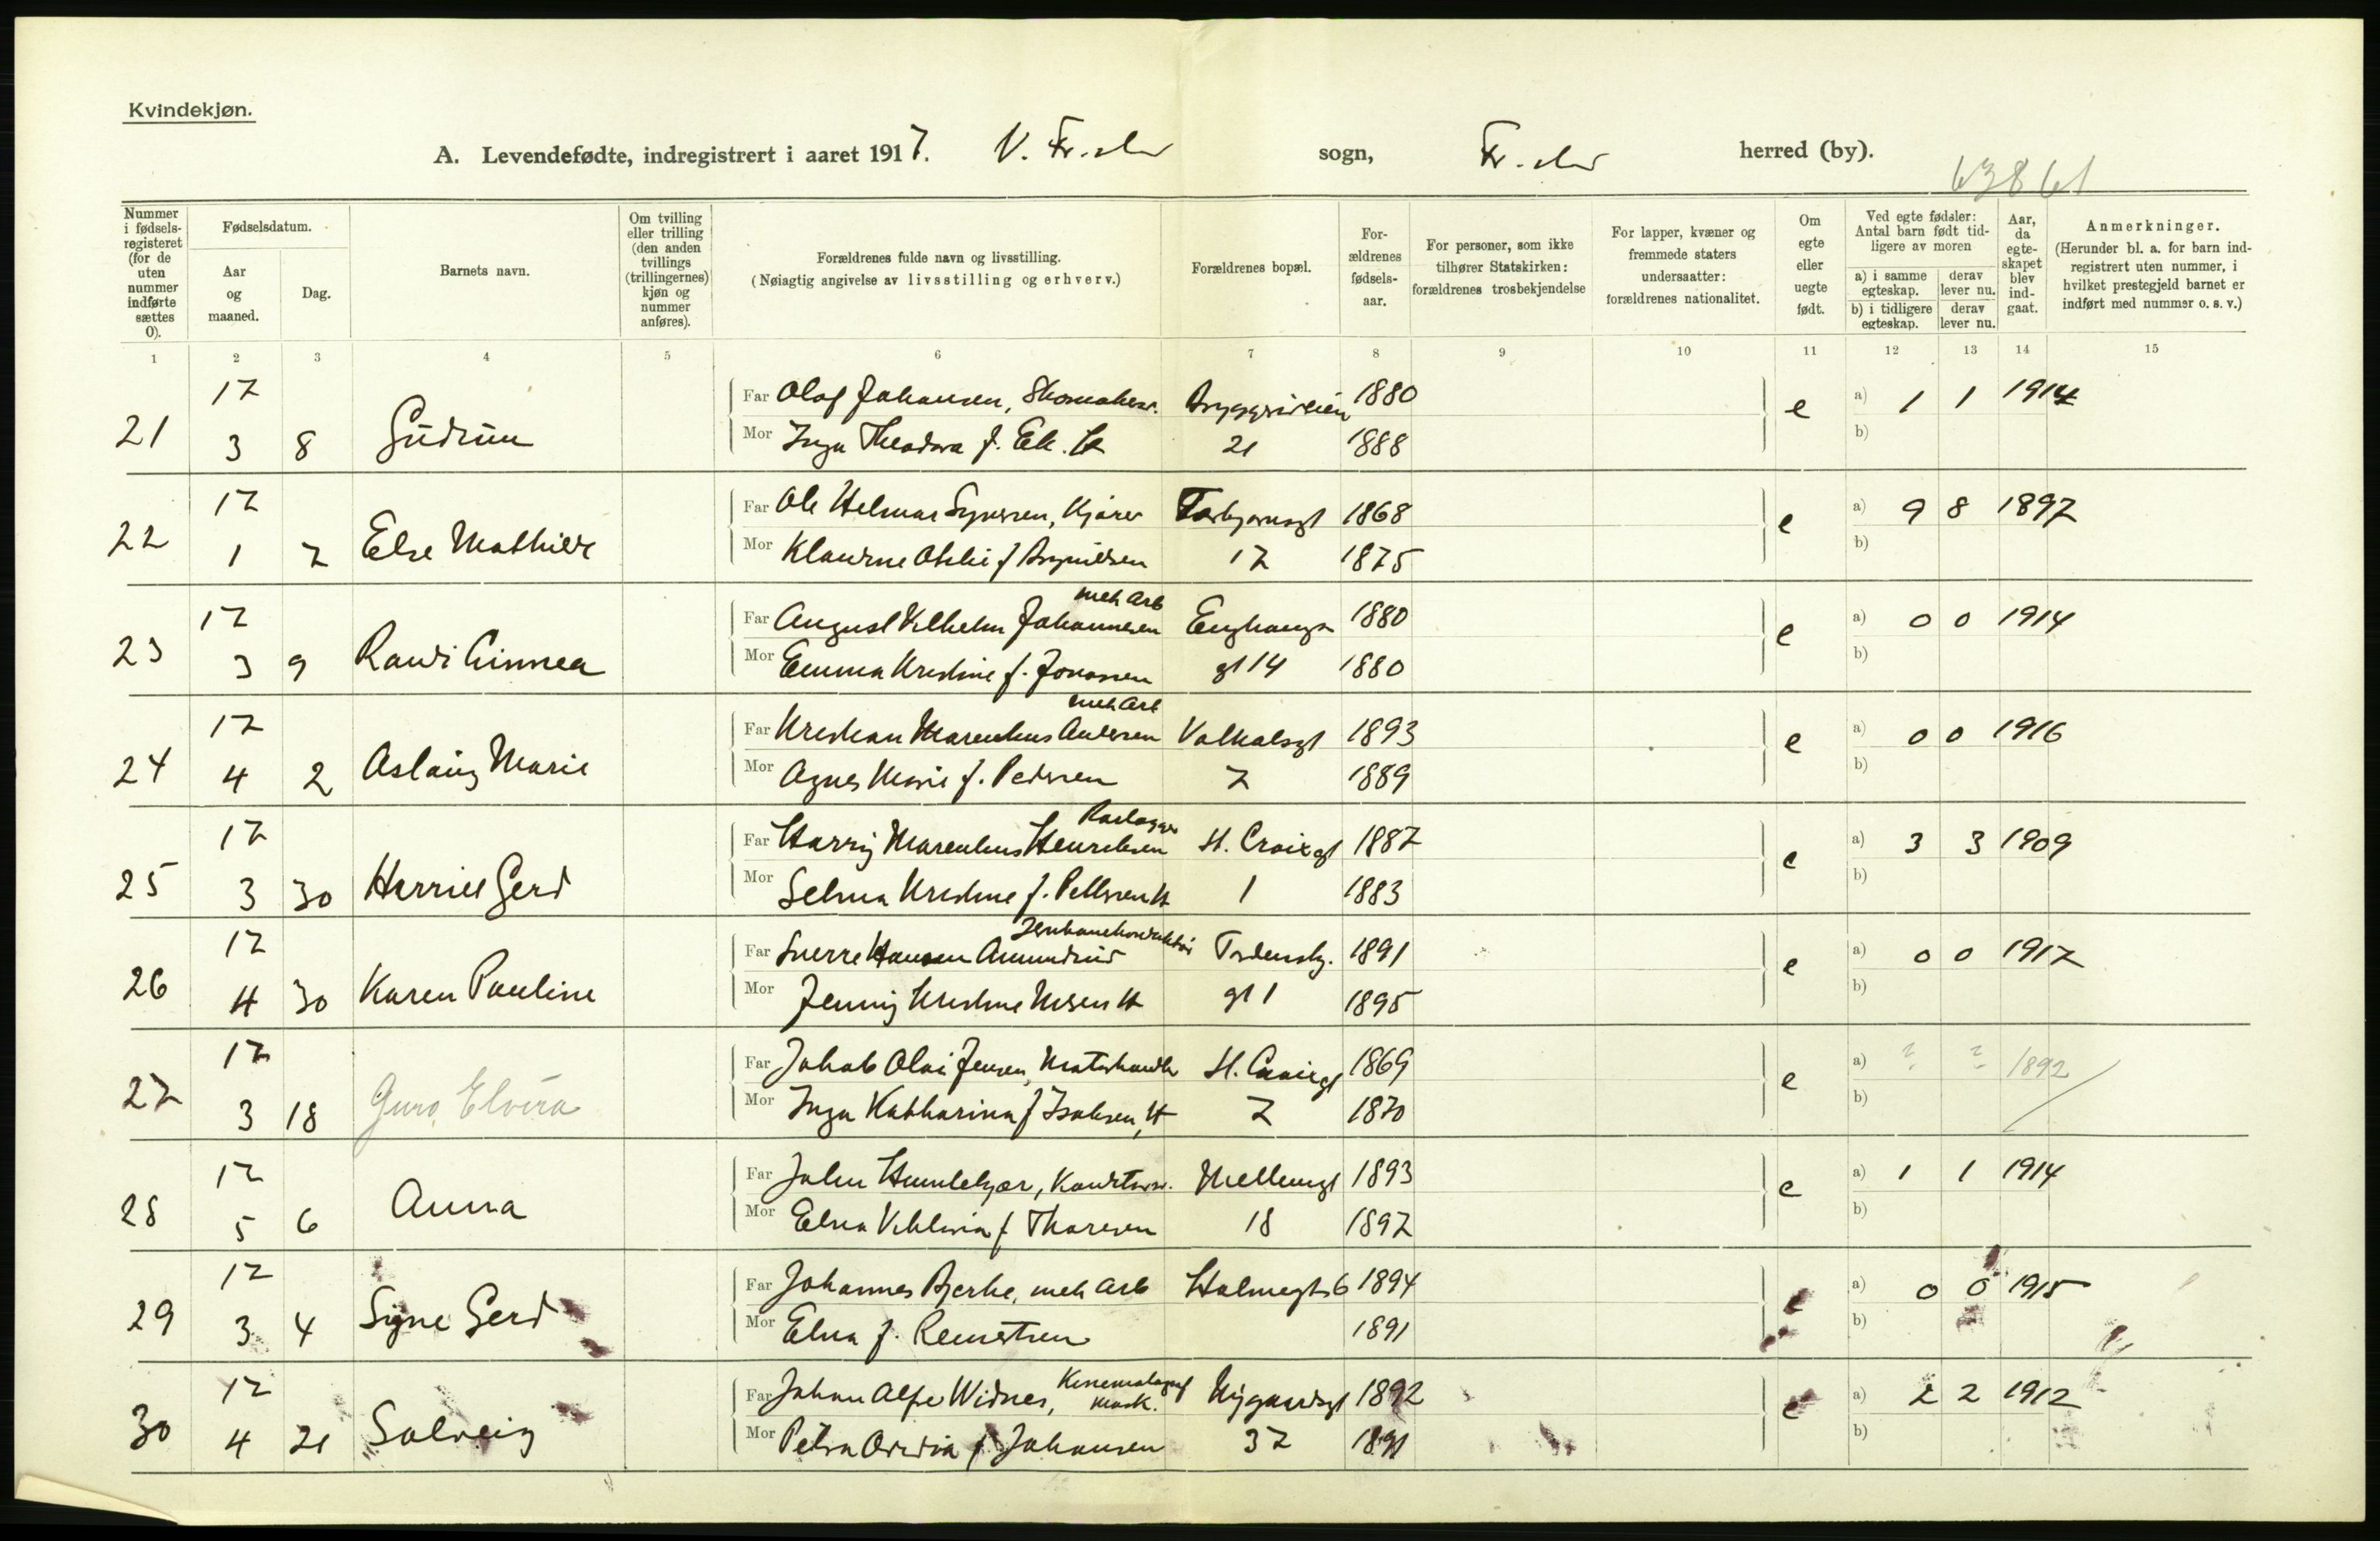 Kvindekjøn.
A. Levendefødte, indregistrert i aaret 1917. V. Fr.stad sogn, Fr.stad herred (by).
63861
Nummer i fødselsregisteret (for de uten nummer indførte sættes 0).
Fødselsdatum.
Aar og maaned.
Dag.
Barnets navn.
Om tvilling eller trilling (den anden tvillings (trillingernes) kjøn og nummer anføres).
Forældrenes fulde navn og livsstilling.
(Nøiagtig angivelse av livsstilling og erhverv.)
Forældrenes bopæl.
Forældrenes fødselsaar.
For personer, som ikke tilhører Statskirken: forældrenes trosbekjendelse
For lapper, kvæner og fremmede staters undersaatter: forældrenes nationalitet.
Om egte eller uegte født.
Ved egte fødsler: Antal barn født tidligere av moren
a) i samme egteskap. derav lever nu.
b) i tidligere egteskap. derav lever nu.
Aar, da egteskapet blev indgaat.
Anmerkninger.
(Herunder bl. a. for barn indregistrert uten nummer, i hvilket prestegjeld barnet er indført med nummer o. s. v.)
1 2 3 4 5 6 7 8 9 10 11 12 13 14 15
17 Far Olof Johansen, Skomaker. Bryggeriveien 1880 e a) 1 1 1914
21 3 8 Gudrun Mor Inga Theodora f. Ek. 21 1888 b)
17 Far Ole Helmar Syversen, Kjører Torbjørnsgt 1868 e a) 9 8 1897
22 1 7 Else Mathilde Mor Klaudine Otilie f Brynildsen 17 1875 b)
17 Far August Vilhelm Johannesen mek Arb Enghaugs 1880 e a) 0 0 1914
23 3 9 Randi Linnea Mor Emma Kristine f. Jonassen gt 14 1880 b)
17 Far Kristian Marenius Andersen mek Arb Valhalsgt 1893 e a) 0 0 1916
24 4 2 Aslaug Marie Mor Agnes Marie f. Pedersen 7 1889 b)
17 Far Harry Marenius Henriksen St. Croixgt 1887 e a) 3 3 1909
25 3 30 Harriet Gerd Mor Selma Kristine f. Pettersen 1 1883 b)
17 Far Sverre Hansen Amundrud Jernbanekonduktør Tordensk. 1891 e a) 0 0 1917
26 4 30 Karen Pauline Mor Jenny Kristine Olsen gt 1 1895 b)
17 Far Jakob Olai Jensen, Maturhandler St. Croixgt 1869 e a) ? ? 1892
27 3 18 Guro Elvira Mor Inga Katharina f Isaksen, 7 1870 b)
17 Far John Humlekjær, Mellemgt 1893 e a) 1 1 1914
28 5 6 Anna Mor Elna f Thoresen 18 1897 b)
17 Far Johannes Bjerke, mek Arb Holmegt 6 1894 e a) 0 0 1915
29 3 4 Signe Gerd Mor Elna f. 1891 b)
17 Far Johan Alfr Widnes, Kinematograf mask. Nygaardsgt 1892 e a) 2 2 1912
30 4 21 Solveig Mor Petra Ovidia f Johansen 37 1891 b)